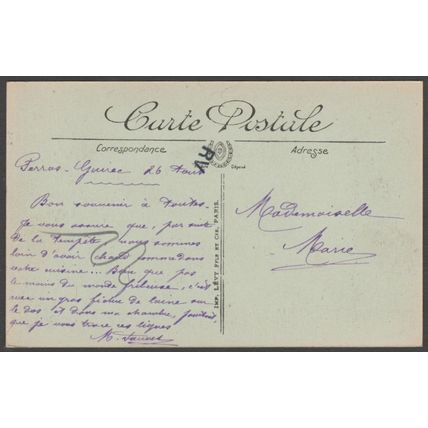 Carte Postale
Correspondance
Adresse
RV
Déposé
Perros-Guirec 26 Août
Bon souvenir à toutes.
Je vous assure que, par suite
de la tempête nous sommes
loin d'avoir chaud
cette semaine... Bien que pas
le moins du monde frileuse, c'est
avec un gros fichu de laine sur
le dos et dans ma chambre,
que je vous trace ces lignes
M.
Mademoiselle
Marie
IMP. LÉVY FILS ET CIE, PARIS